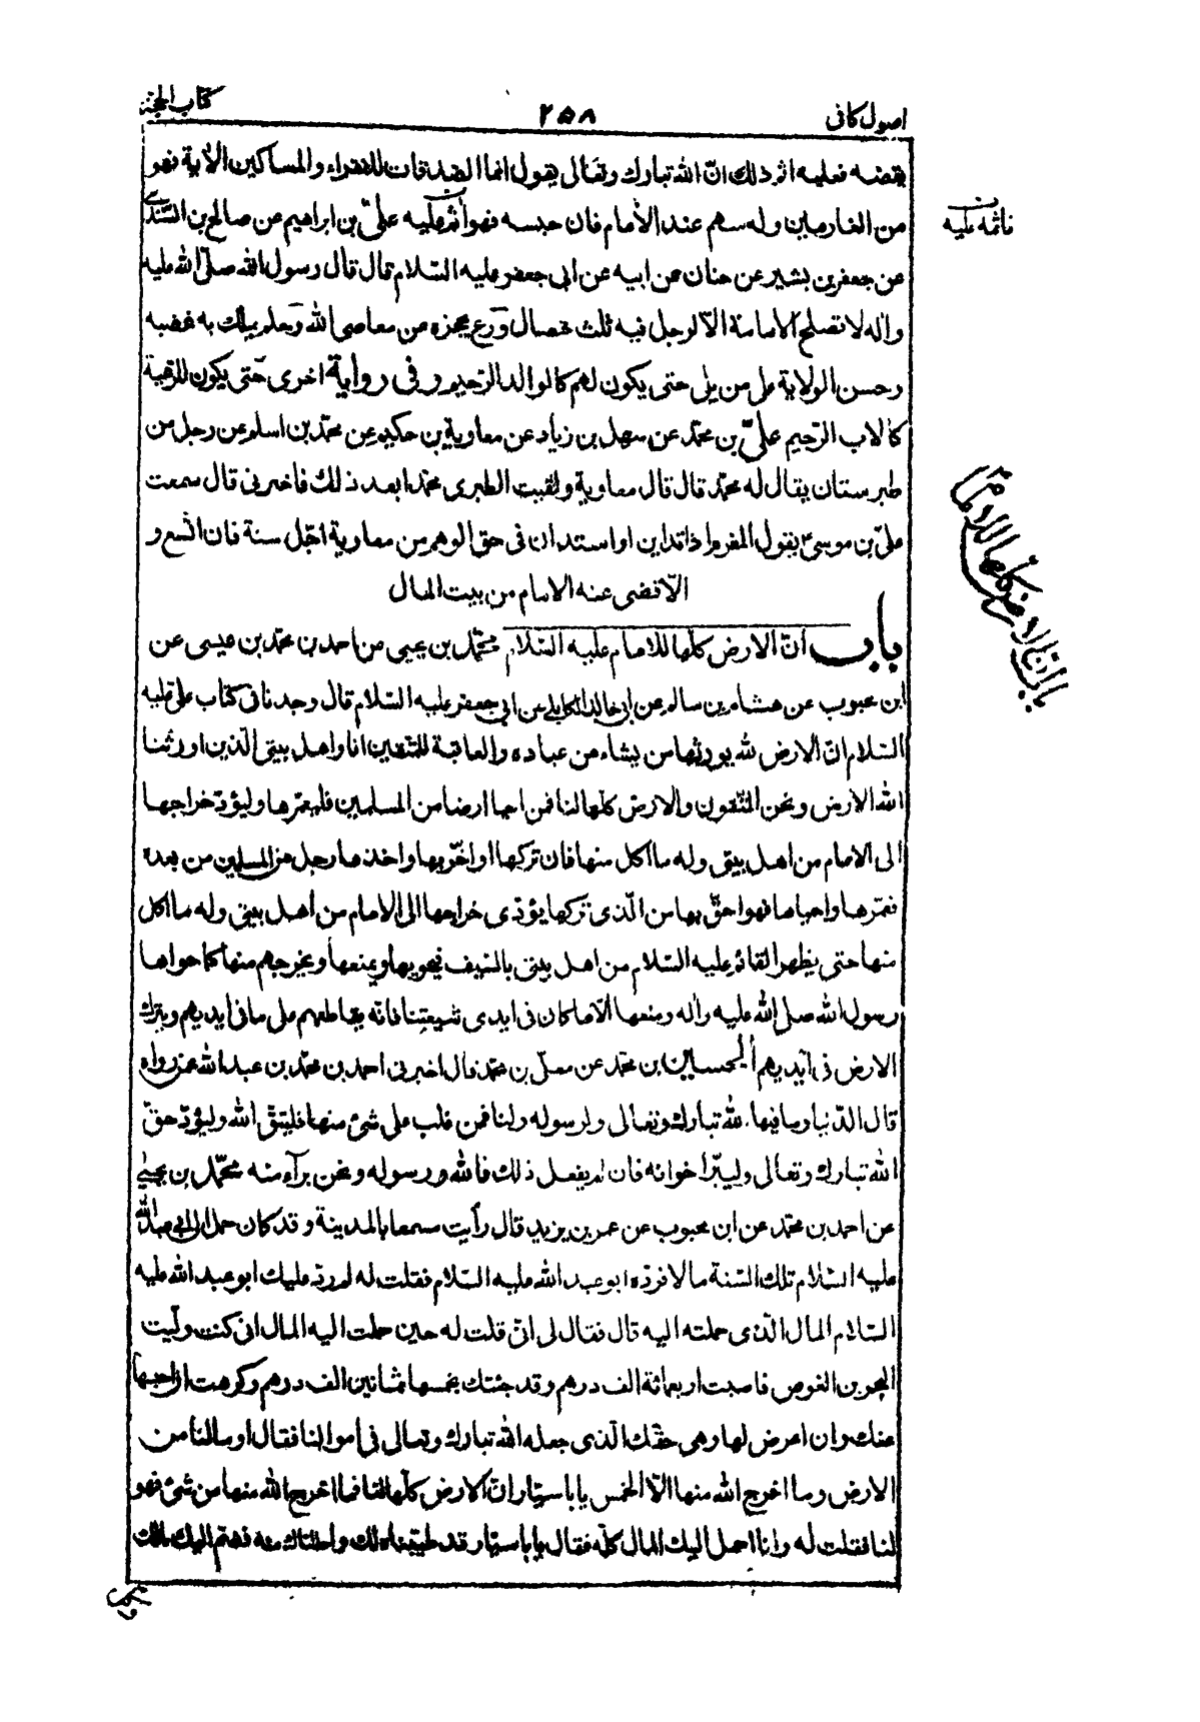 اصول كافى
٢٥٨
كتاب الحجة
يقضه فعليه اثم ذلك انّ الله تبارك وتعالى يقول انما الصدقات للفقراء والمساكين الاية فهو
من الغارمين وله سهم عند الأمام فان حبسه فهو اثم عليه علىّ بن ابراهيم عن صالح بن السّندى
عن جعفر بن بشير عن حنان عن ابيه عن ابى جعفر عليه السّلام قال قال رسول الله صلّى الله عليه
واله لا تصلح الامامة الّا لرجل فيه ثلث خصال ورع يحجزه عن معاصى الله وحلم يملك به غضبه
وحسن الولاية على من يلى حتى يكون لهم كالوالد الرّحيم وفى رواية اخرى حتّى يكون للرّعية
كالاب الرّحيم علىّ بن محمّد عن سهل بن زياد عن معاوية بن حكيم عن محمّد بن اسلم عن رجل من
طبرستان يقال له محمّد قال قال معاوية ولقيت الطبرى محمّدا بعد ذلك فاخبرنى قال سمعت
علىّ بن موسى ع يقول المغرم اذا تداين او استدان فى حق الوهم من معاوية اجّل سنة فان اتّسع و
الّا قضى عنه الامام من بيت المال
باب انّ الارض كلّها للامام عليه السّلام محمّد بن يحيى عن احمد بن محمّد بن عيسى عن
ابن محبوب عن هشام بن سالم عن ابى خالد الكابلى عن ابى جعفر عليه السّلام قال وجدنا فى كتاب علىّ عليه
السّلام انّ الارض لله يورثها من يشاء من عباده والعاقبة للمتّقين انا واهل بيتى الّذين اورثنا
الله الأرض ونحن المتّقون والارض كلّها لنا فمن احيا ارضا من المسلمين فليعمّرها وليؤدّ خراجها
الى الامام من اهل بيتى وله ما اكل منها فان تركها او اخربها واخذها رجل من المسلمين من بعده
فعمّرها واحياها فهو احقّ بها من الّذى تركها يؤدّى خراجها الى الامام من اهل بيتى وله ما اكل
منها حتى يظهر القائم عليه السّلام من اهل بيتى بالسّيف فيحويها ويمنعها ويخرجهم منها كما حواها
رسول الله صلى الله عليه واله ومنعها الّا ما كان فى ايدى شيعتنا فانّه يقاطعهم على ما فى ايديهم ويترك
الارض فى ايديهم الحسين بن محمّد عن معلّى بن محمّد قال اخبرنى احمد بن محمّد بن عبد الله عمّن رواه
قال الدّنيا وما فيها لله تبارك وتعالى ولرسوله ولنا فمن غلب على شئ منها فليتّق الله وليؤدّ حقّ
الله تبارك وتعالى وليبّر اخوانه فان لم يفعل ذلك فالله ورسوله ونحن برآء منه محمّد بن يحيى
عن احمد بن محمّد عن ابن محبوب عن عمر بن يزيد قال رأيت مسمعا بالمدينة وقد كان حمل الى ابى عبد الله
عليه السّلام تلك السّنة مالا فردّه ابو عبد الله عليه السّلام فقلت له لم ردّ عليك ابو عبد الله عليه
السّلام المال الّذى حملته اليه قال فقال لى انّى قلت له حين حملت اليه المال انى كنت ولّيت
البحرين الغوص فاصبت اربعمائة الف درهم وقد جئتك بخمسها بثمانين الف درهم وكرهت ان احبسها
عنك وان اعرض لها وهى حقّك الّذى جعله الله تبارك وتعالى فى اموالنا فقال او ما لنا من
الارض وما اخرج الله منها الّا الخمس يا با سيّار انّ الارض كلّها لنا فما اخرج الله منها من شئ فهو
لنا فقلت له وانا احمل اليك المال كلّه فقال يا با سيّار قد طيّبناه لك واحللناك منه فضمّ اليك مالك
باب انّ الارض كلها للامام